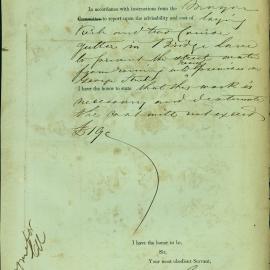 In accordance with instructions from the Mayor
Committee to report upon the advisability and cost of laying
Kerb and two Course
gutter in Bridge Lane
to prevent the street water
from running into premises in
George Street
I have the honor to state that this work is
necessary and
the cost will not exceed
£19
I have the honor to be,
Sir,
Your most obedient Servant,